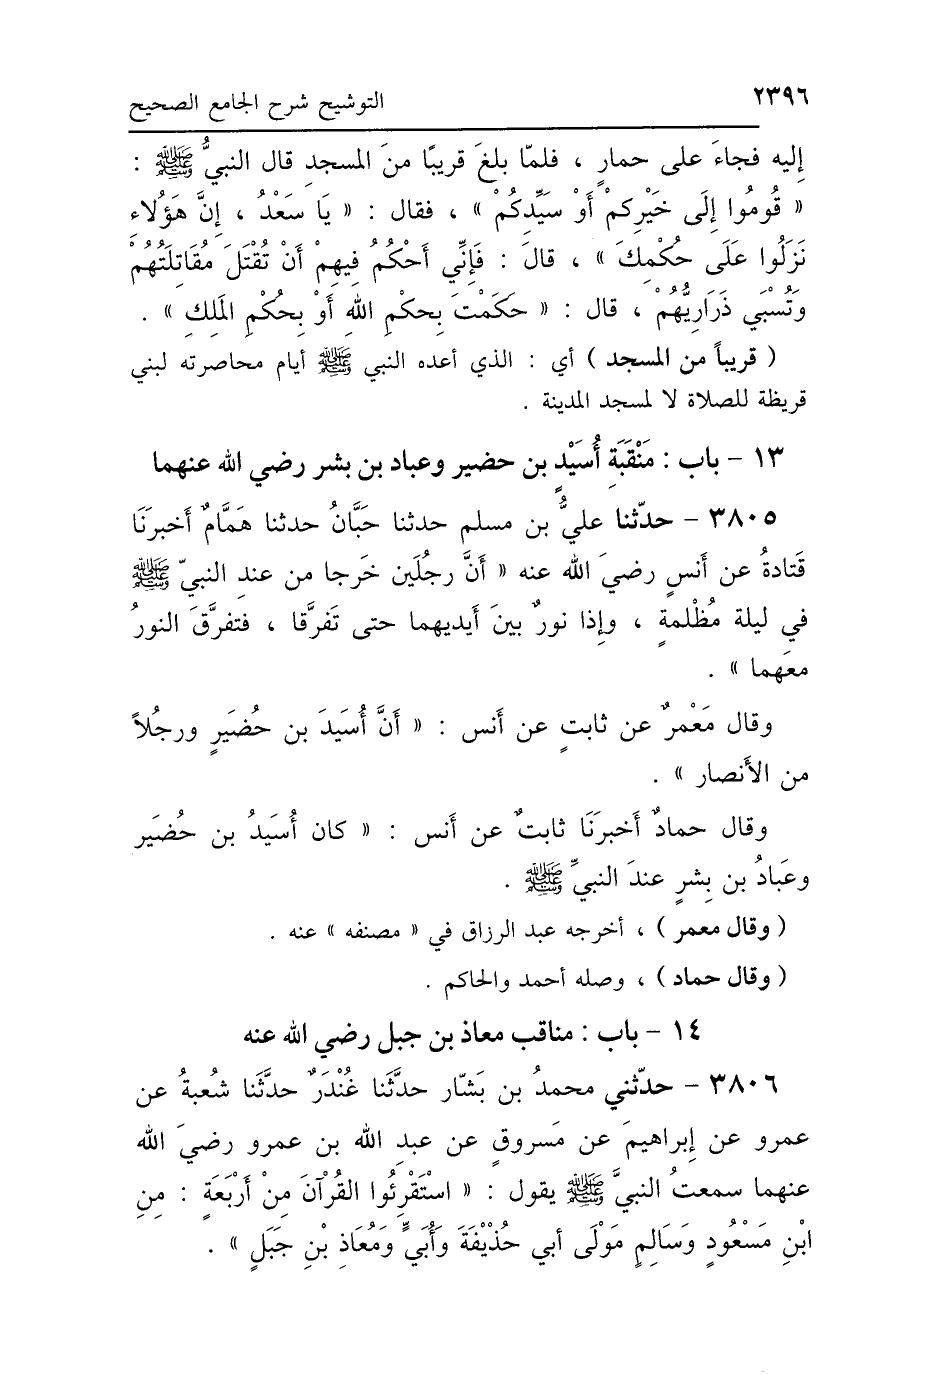 ٢٣٩٦
التوشيح شرح الجامع الصحيح
إليه فجاءَ على حمارٍ ، فلمّا بلغَ قريبًا منَ المسجدِ قال النبيُّ ﷺ :
« قُومُوا إِلَى خَيْرِكمْ أَوْ سَيِّدِكُمْ » ، فقال : « يَا سَعْدُ ، إِنَّ هَؤُلاءِ
نَزَلُوا عَلَى حُكْمِكَ » ، قالَ : فَإِنِّي أَحْكُمُ فِيهِمْ أَنْ تُقْتَلَ مُقَاتِلَتُهُمْ
وَتُسْبَي ذَرَارِيُّهُمْ ، قال : « حَكَمْتَ بِحكْمِ اللهِ أَوْ بِحُكْمِ المَلِكِ » .
( قريباً من المسجد ) أي : الذي أعده النبي ﷺ أيام محاصرته لبني
قريظة للصلاة لا لمسجد المدينة .
١٣ - باب : مَنْقَبَةِ أُسَيْدٍ بن حضير وعباد بن بشر رضي الله عنهما
٣٨٠٥ - حدّثنا عليُّ بن مسلمٍ حدثنا حَبَّانُ حدثنا هَمَّامٌ أخبرَنَا
قَتادةُ عن أَنسٍ رضيَ الله عنه « أَنَّ رجُلَين خَرجا من عندِ النبيّ ﷺ
في ليلة مُظْلمةٍ ، وإِذا نورٌ بينَ أَيديهما حتى تَفرَّقا ، فتفرَّقَ النورُ
معَهما » .
وقال مَعْمرٌ عن ثابتٍ عن أَنس : « أَنَّ أُسَيَدَ بن حُضَيرٍ ورجُلاً
من الأَنصار » .
وقال حمادٌ أَخبرَنَا ثابتٌ عن أَنس : « كان أُسَيَدُ بن حُضَير
وعَبادُ بن بِشرٍ عندَ النبيِّ ﷺ .
( وقال معمر ) ، أخرجه عبد الرزاق في « مصنفه » عنه .
( وقال حماد ) ، وصله أحمد والحاكم .
١٤ - باب : مناقب معاذ بن جبل رضي الله عنه
٣٨٠٦ - حدّثني محمدُ بن بَشّار حدَّثَنا غُنْدَرٌ حدَّثَنا شُعبةُ عن
عمرو عن إبراهيمَ عن مَسروقٍ عن عبدِ الله بن عمرو رضيَ الله
عنهما سمعتُ النبيَّ ﷺ يقول : « استَقْرِئُوا القُرْآنَ مِنْ أَرْبَعَةٍ : مِنِ
ابْنِ مَسْعُودٍ وَسَالِمٍ مَوْلَى أَبي حُذْيْفَةَ وَأُبَيٍّ وَمُعَاذِ بْنِ جَبَلٍ » .